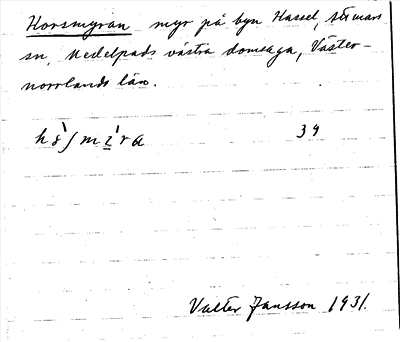 Korsmyran myr på byn Hassel, Stöde
sn, Medelpads västra domsaga, Väster-
norrlands län.
39
Valter Jansson 1931.